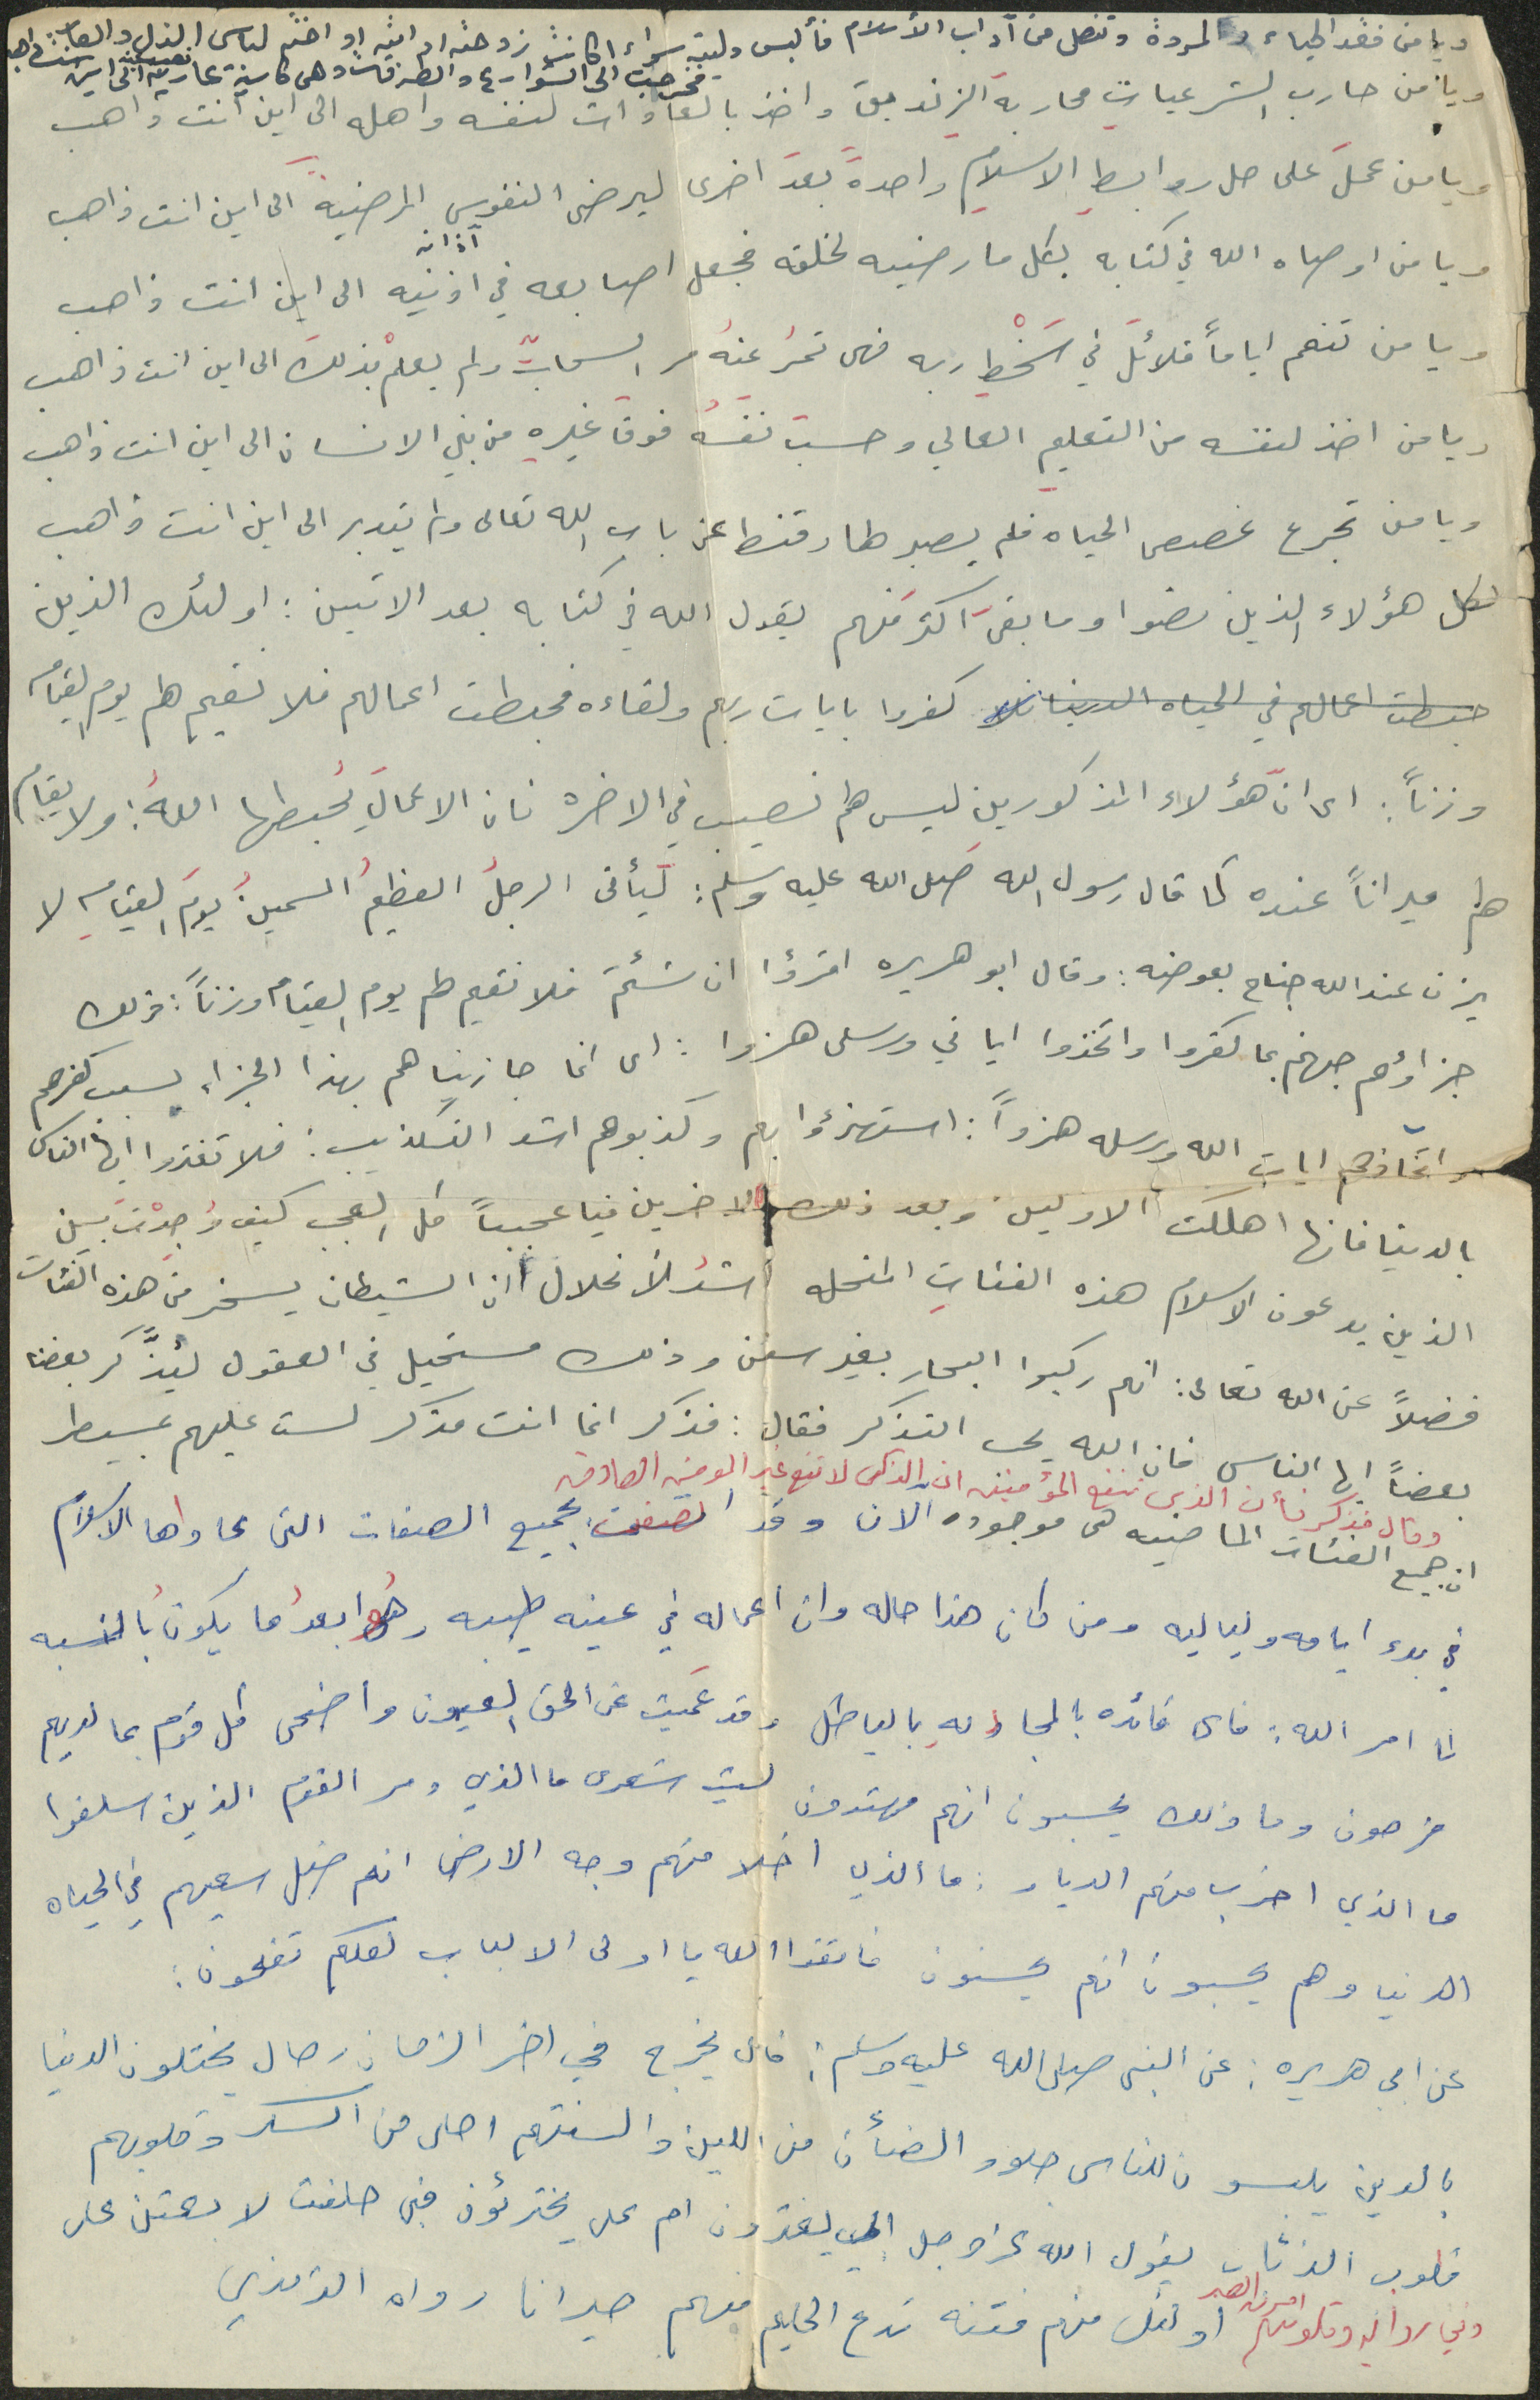 ويا من فقد الحياء والمروءة وتنصل من آداب الأسلام فألبس وليته سواء اكانت زوجته ام ابنته او اخته لباس الذل والعار
فخرجت الى الشوارع والطرقات وهى كاسية عارية الى اين
ويا من حارب الشرعيات محاربة الزنديق واخذ بالعادات لنفسه واهله الى اين انت ذاهب
ويا من عمل على حل روابط الاسلام واحدة بعد اخرى ليرضى النفوس المرضية الى اين انت ذاهب
آذانه
ويا من اوصاه الله في كتابه بكل ما رضيه لخلقه فجعل اصابعه في اذنيه الى اين انت ذاهب
ويا من تنعم اياماً قلائل في سَخْطِ ربه فهى تمرُ عنهُ مر السحاب ولم يعلمْ بذلك الى اين انت ذاهب
ويا من اخذ لنفسه من التعليم العالي وحسب نفسهُ فوق غيرهِ من بني الانسان الى اين انت ذاهب
ويا من تجرع غصص الحياه فلم يصبر لها وقنط عن باب الله تعالى ولم يتدبر الى اين انت ذاهب
لكل هؤلاء الذين مضوا وما بقىَ اكثر منهم يقول الله في كتابه بعد الاتيين : اولئك الذين
حبطت اعمالهم في الحياه الدنيا كفروا بايات ربهم ولقاءه فحبطت اعمالهم فلا نقيم لهم يوم القيامه
وزناً : اى انّ هؤلاء المذكورين ليس لهم نصيب في الاخره فان الاعمال يُحبطها اللهُ : ولا يقام
لهم ميزاناً عنده كما قال رسول الله صلى الله عليه وسلم : ليأتى الرجلُ العظيمُ السمينُ يومَ القيامهِ لا
يزن عند الله جناح بعوضه : وقال ابو هريره اقرؤا ان شئتم فلا نقيم لهم يوم القيامه وزناً : ذلك
جزاؤهم جهنم بما كفروا واتخذوا اياتي ورسلى هزوا : اى انما جازيناهم بهذا الجزاء بسبب كفرهم
واتخاذهم ايات الله ورسله هزواً : استهزؤا بهم وكذبوهم اشد التكذيب : فلا تغتروا ايها الناس
بالدينا فانها اهلكت الاولين وبعد ذلك الاخرين فيا عجبباً كل العجب كيف وُجِدْتَ بين
الذين يدعون الاسلام هذه الفئات المنحله اشدُ الأنحلال ان الشيطان يسخر من هذه الفئات
فضلاً عن الله تعالى : انهم ركبوا البحار بغير سفن وذلك مستحيل في العقول ليُذكر بعضنا
بعضاً ايها الناس فان الله يحب التذكر فقال : فذكر انما انت مذكر لست عليهم بمسيطر
وقال فذكر فأن الذكرى تنفع المؤمنين ان الذكرى لا تنفع غير المومنين الصادقين
ان جميع الفئات الماضيه هى موجوده الان وقد اتصفت بجميع الصفات التى عاداها الاسلام
في بدء ايامه ولياليه ومن كان هذا حاله وان اعماله في عينه طيبه وهُو ابعدُ ما يكونُ بالنسبه
لما امر الله : فاى فائده بالمجادلهِ بالباطل وقد عَميت عن الحق العيون واضحى كل قوم بما لديهم
فرحون وما ذلك يحسبون انهم مهتدون ليت شعرى ما الذي دمر القوم الذين سلفوا
ما الذي اخرب منهم الديار : ما الذي اخلا منهم وجه الارض انهم ضل سعيهم في الحياه
الدنيا وهم يحسبون انهم يحسنون فاتقوا الله يا اولى الالباب لعلكم تفلحون :
عن ابي هريره : عن النبى صلى الله عليه وسلم : قال يخرج في اخر الزمان رجال يختلون الدنيا
بالدين يلبسون للناس جلود الضأن من اللين والسنتهم احلى من السكر وقلوبهم
قلوب الذئاب يقول الله عز وجل ابي يغترون ام على يجترئون فبى حلفت لا بعثن على
وفي رواية وقلوبهم امر من الصبر
اولئك منهم فتنه تدع الحليم منهم حيرانا رواه الترمذي